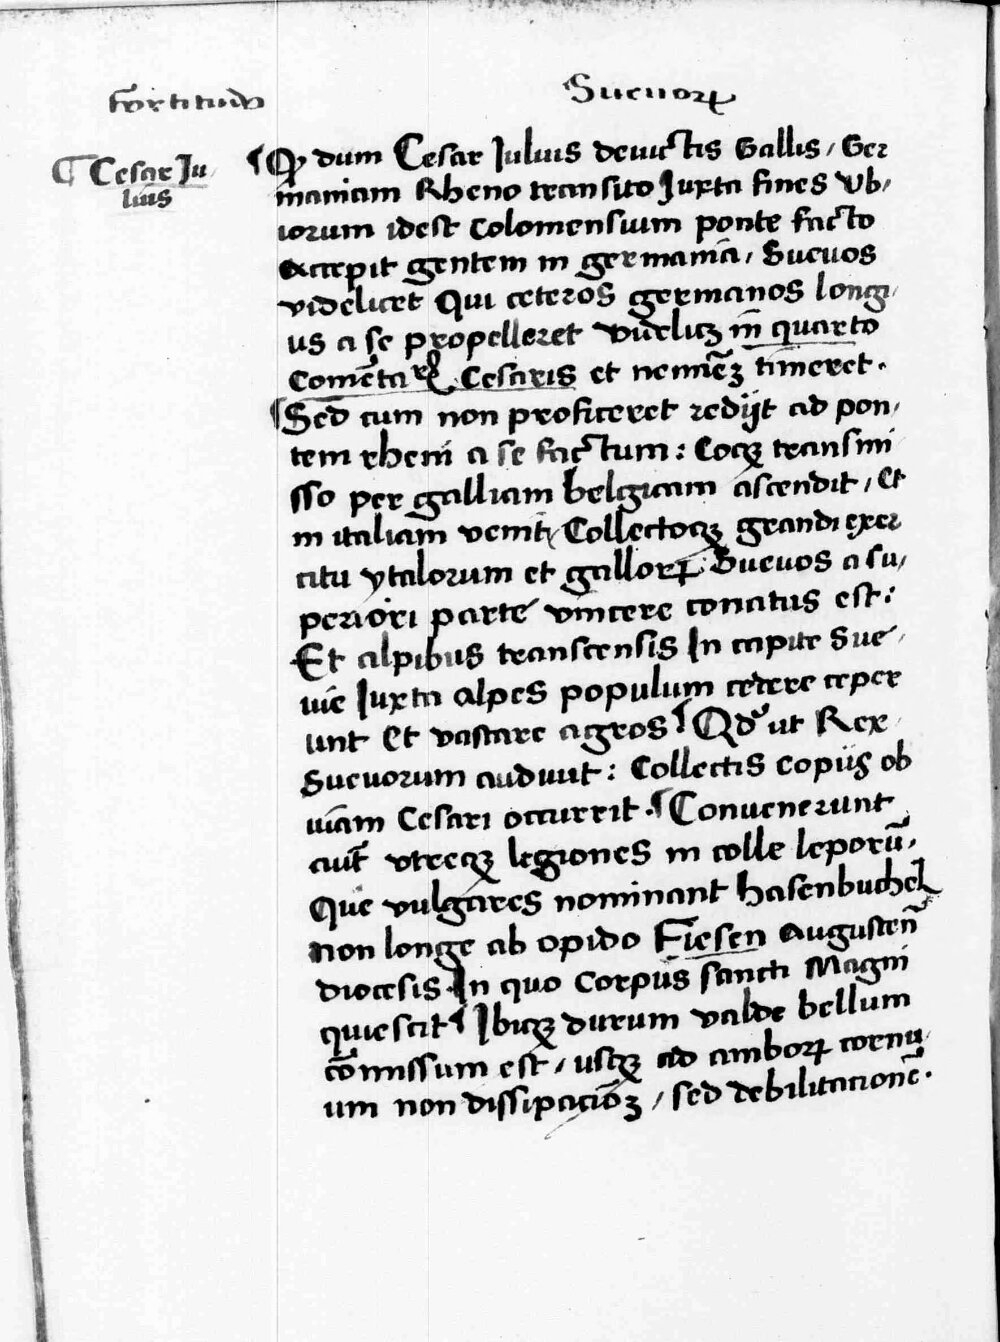 Fortitudo Sueuoꝝ
¶ Cesar Ju
lius
¶ Qꝫ dum Cesar Juluis deuictis Gallis / Ger
maniam Rheno transito Juxta fines Vb/
iorum idest Coloniensium ponte facto
accepit gentem in germania / Sueuos
videlicet Qui ceteros germanos longi/
us a se propelleret videlicꝫ in quarto
Comētarꝝ Cesaris et neminēꝫ timeret.
¶ Sed cum non proficeret redijt ad pon/
tem rheni a se factum: Eoqꝫ transmi
sso per galliam belgicam ascendit / et
in italiam venit / Collectoqꝫ grandi exer
citu ytalorum et galloꝝ Sueuos a su/
periori parte vincere conatus est:
Et alpibus transcensis In capite Sue/
uie Juxta alpes populum cedere ceper
unt et vastare agros ¶ Qd' ut Rex
Sueuorum audiuit: Collectis copijs ob
uiam Cesari occurrit. ¶ Conuenerunt
aut̄ vtreqꝫ legiones in colle leporū.
Que vulgares nominant hasenbuchel
non longe ab opido Fiesen Augusten̄
diocesis. In quo Corpus sancti Magni
quiescit ¶ Ibiqꝫ durum valde bellum
cōmissum est / usqꝫ ad amboꝝ cornu
um non dissipaciōꝫ / sed debilitacionē.